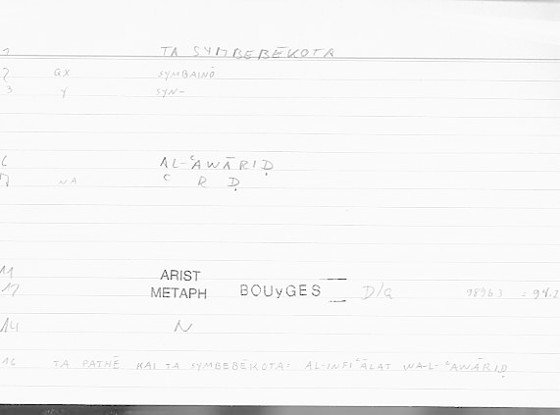 1 TA SYMBEBĒKOTA
2 GX SYMBAINŌ
3 Y SYN-
6 AL-ʿAWĀRIḌ
7 NA ʿ R Ḍ
11 ARIST
11 METAPH BOUyGES D/a
14 N
16 TA PATHĒ KAI TA SYMBEBĒKOTA: AL-INFIʿĀLAT WA-L-ʿAWĀRIḌ